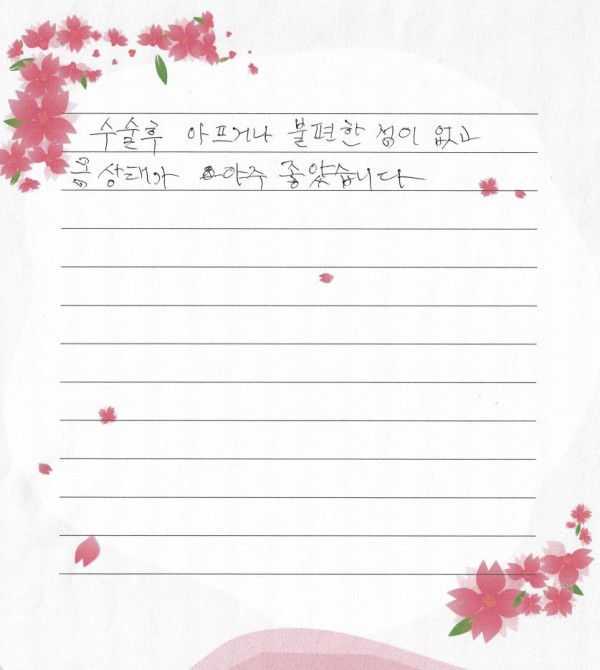 수술후 아프거나 불편한 점이 없고
몸 상태가 아주 좋았습니다